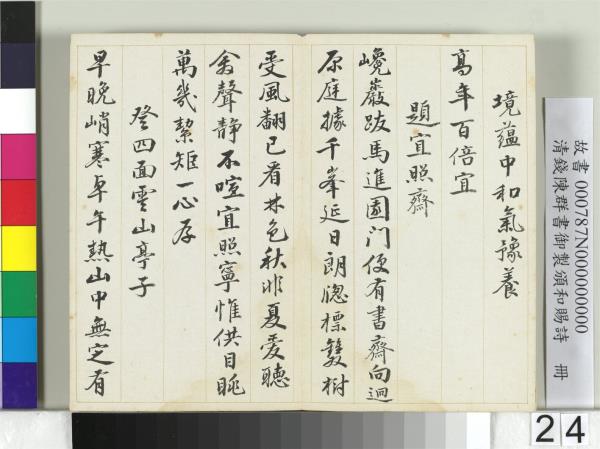 境蘊中和氣豫養
高年百倍宜
題宜照齋
巉巖跋馬進園門便有書齋向迥
原庭據千峯延日朗牕標雙樹
受風翻已看林色秋非夏愛聽
禽聲静不喧宜照寧惟供目眺
萬幾絜矩一心存
登四面雲山亭子
早晚峭寒卓午熱山中無定有
故書 000787N000000000
清錢陳群書御製頒和賜詩 冊
24